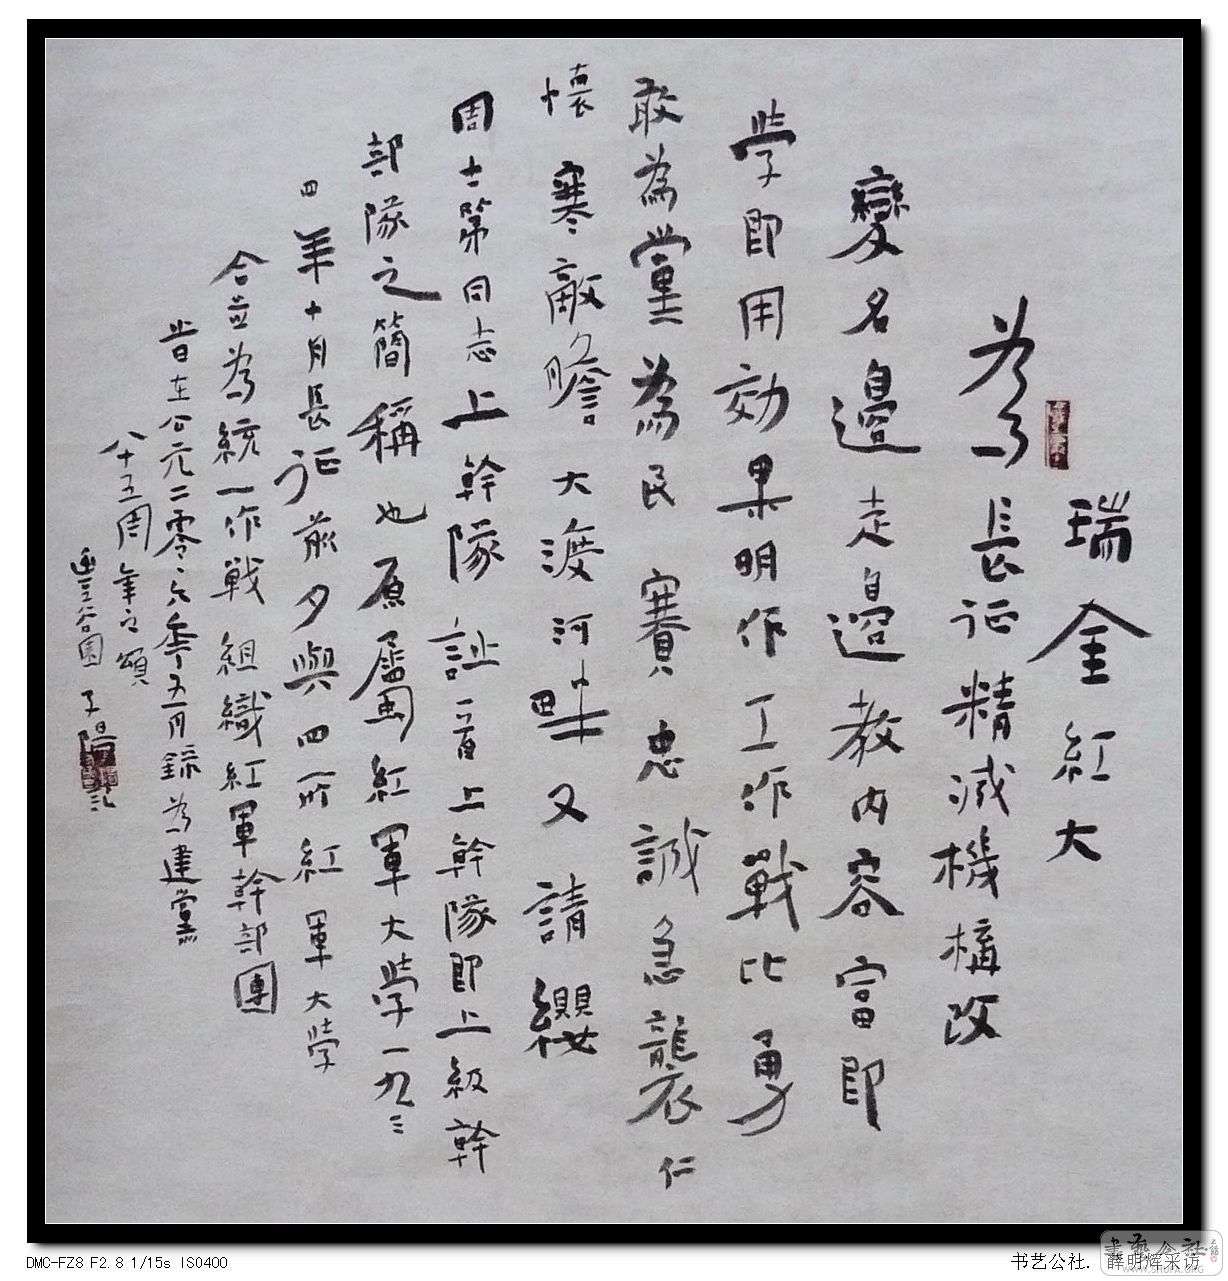 瑞金紅大
為長征精减機構改
變名邊走邊教内容富即
學即用効果明作工作戰比勇
敢為黨為民賽忠誠急襲仁
懷寒敵膽大渡河畔又請纓
周士第同志上幹隊誌一首上幹隊即上級幹
部隊之簡稱也原屬紅軍大學一九三
四年十月長征前夕與四所紅軍大學
合並為統一作戰組織紅軍幹部團
昔在公元二零零六年五月錄為建黨
八十五周年之頌
豐谷園子陽記
DMC-FZ8 F2.8 1/15s ISO400
书艺公社. 薛明辉采访
書藝公社
www.shufa.org